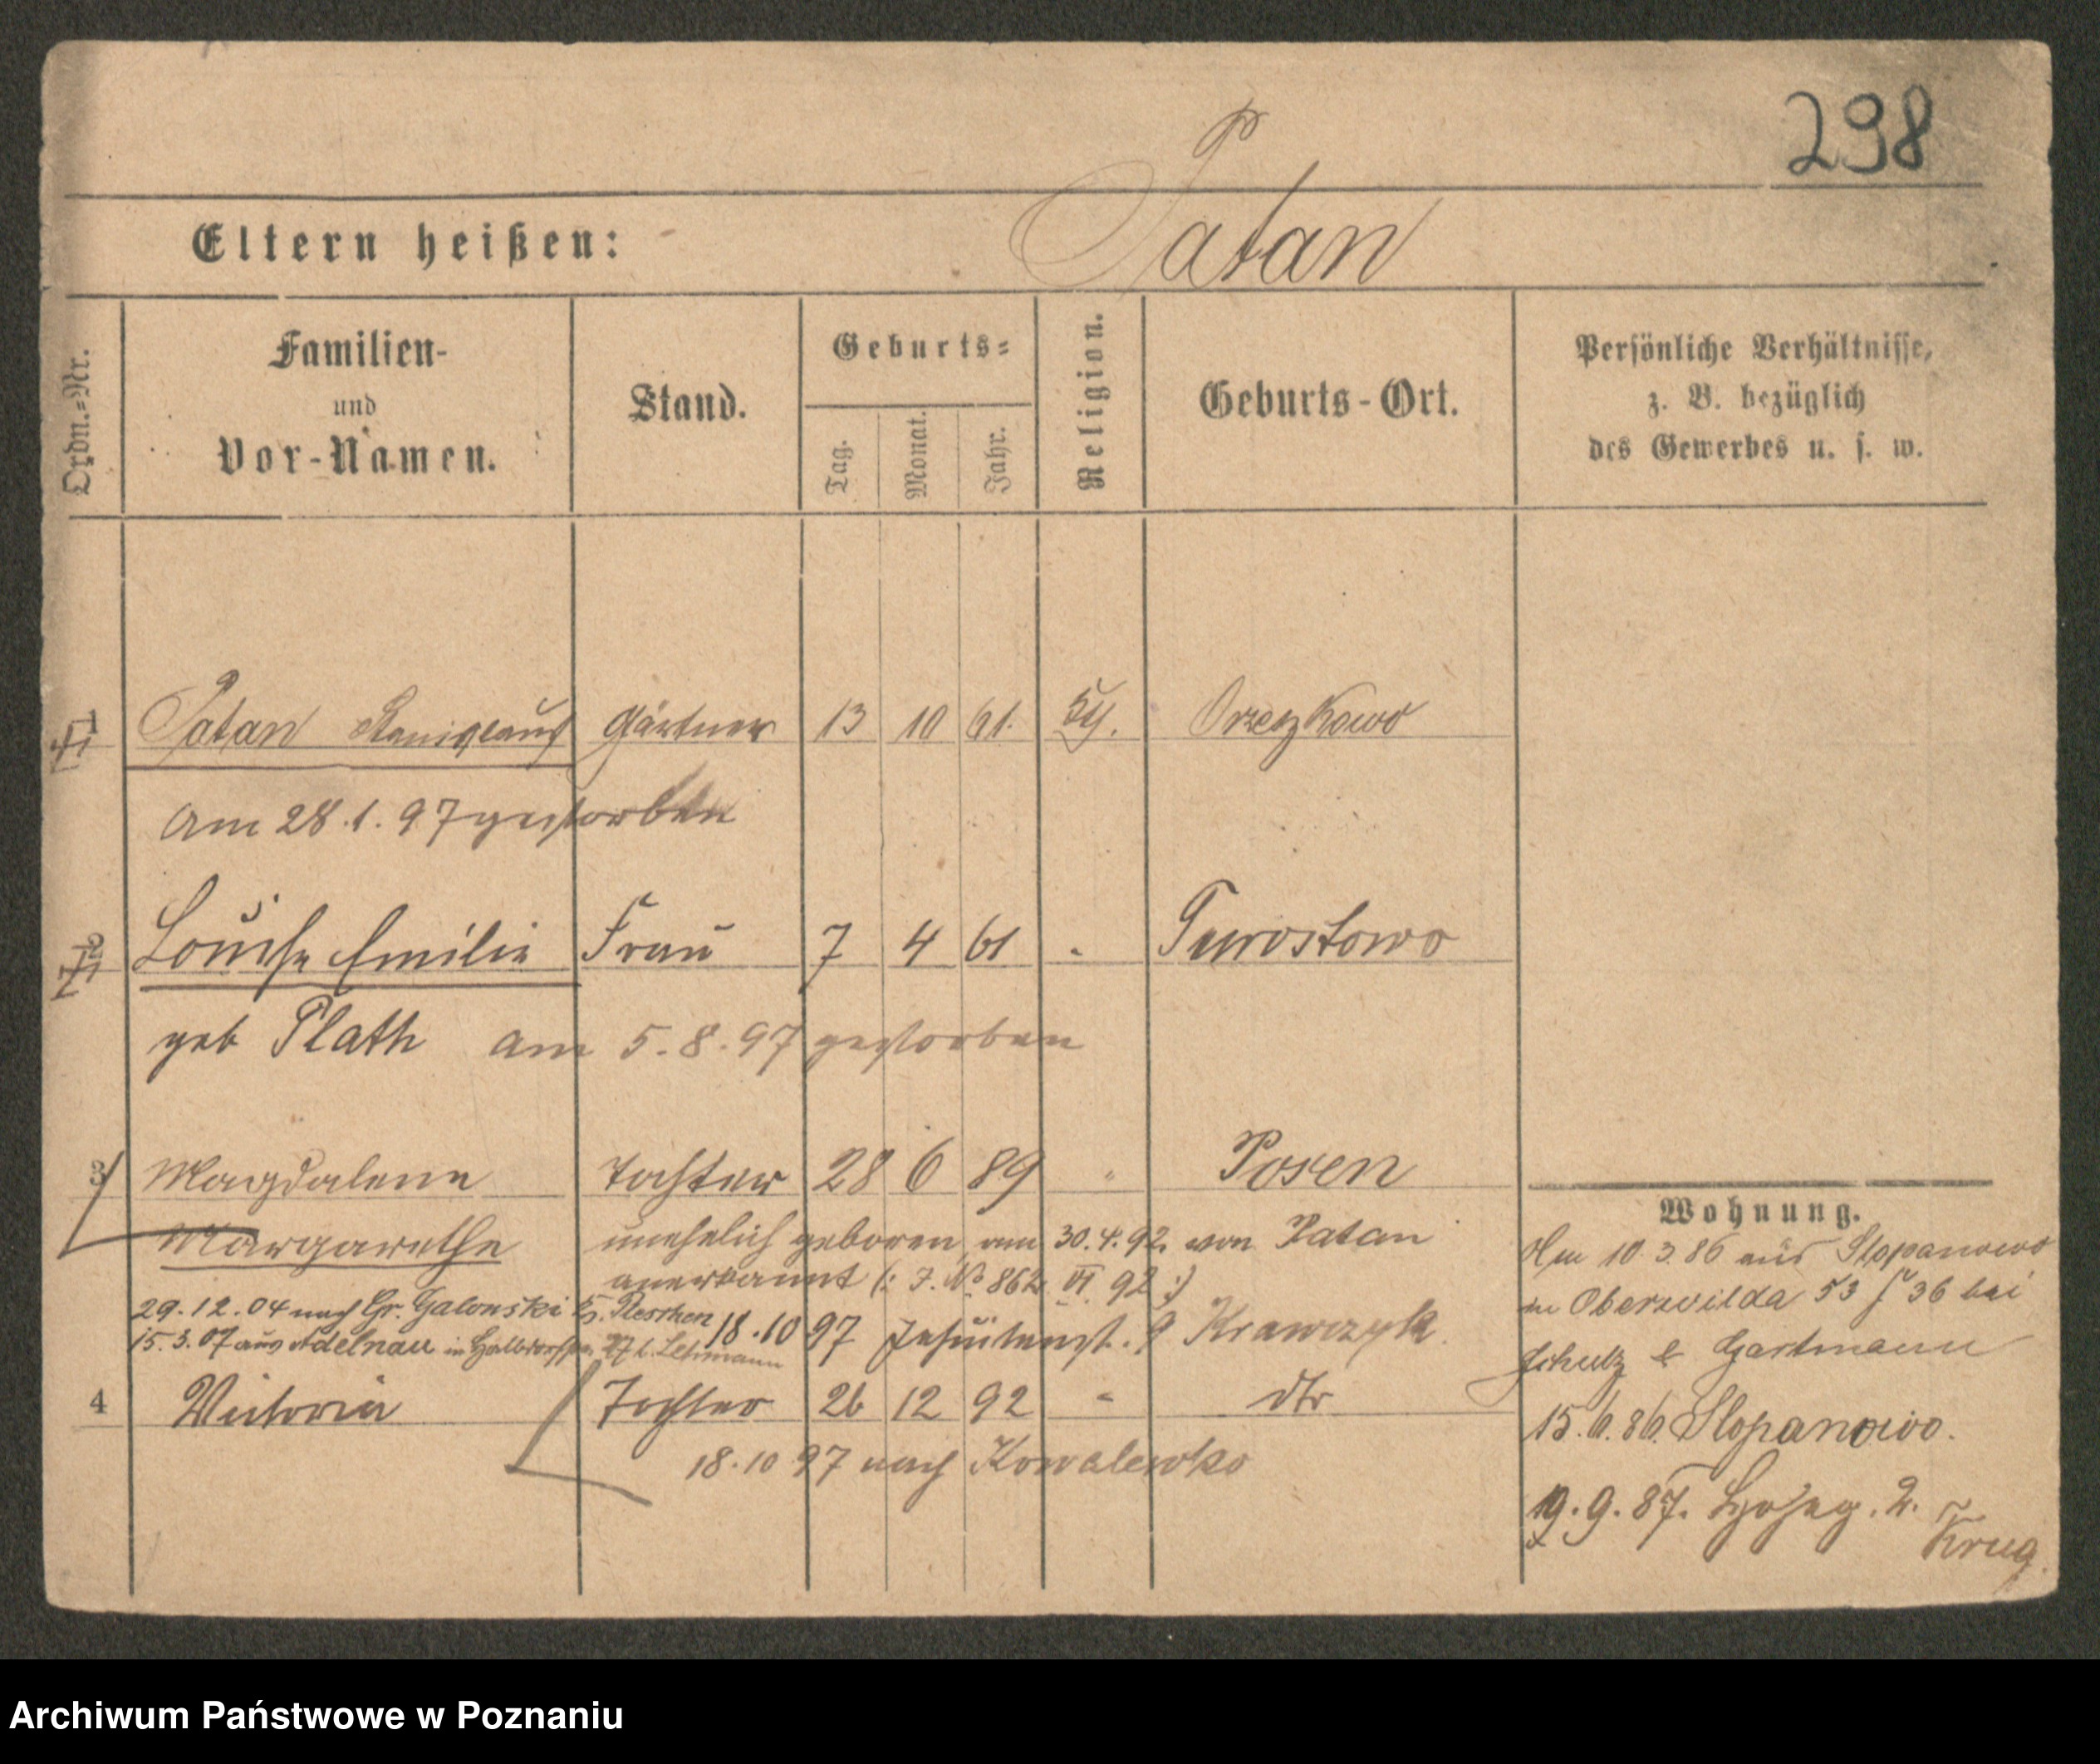 298
P
Eltern heißen: Patan
Ordn.=Nr. Familien- und Vor-Namen. Stand. Geburts= Tag. Monat. Jahr. Religion. Geburts-Ort. Persönliche Verhältnisse, z. B. bezüglich des Gewerbes u. s. w.
1 Patan Stanislaus Gärtner 13 10 61. Orzeszkowo
am 28.1.97 gestorben
2 Louise Emilie Frau 7 4 61 " Turostowo
geb Plath am 5.8.97 gestorben
3 Magdalena Tochter 28 6 89 " Posen
Margarethe unehelich geboren, am 30.4.92 von Patan
anerkannt (: J. No 862 VI 92 :)
29.12.04 nach Gr. Galonski Ks. Pleschen 18.10 97 Jesuitenst. 9 Krawczyk.
15.3.07 aus Adelnau in Halbdorfstr. 27 b. Lehmann
4 Victoria Tochter 26 12 92 " dto
18.10 97 nach Kowalewko
Wohnung.
Am 10.3.86 aus Stopanowo
in Oberwilda 53 36 bei
Schulz & Gartmann
15.6.86. Stopanowo.
19.9.87. 2.
Krug.
Archiwum Państwowe w Poznaniu